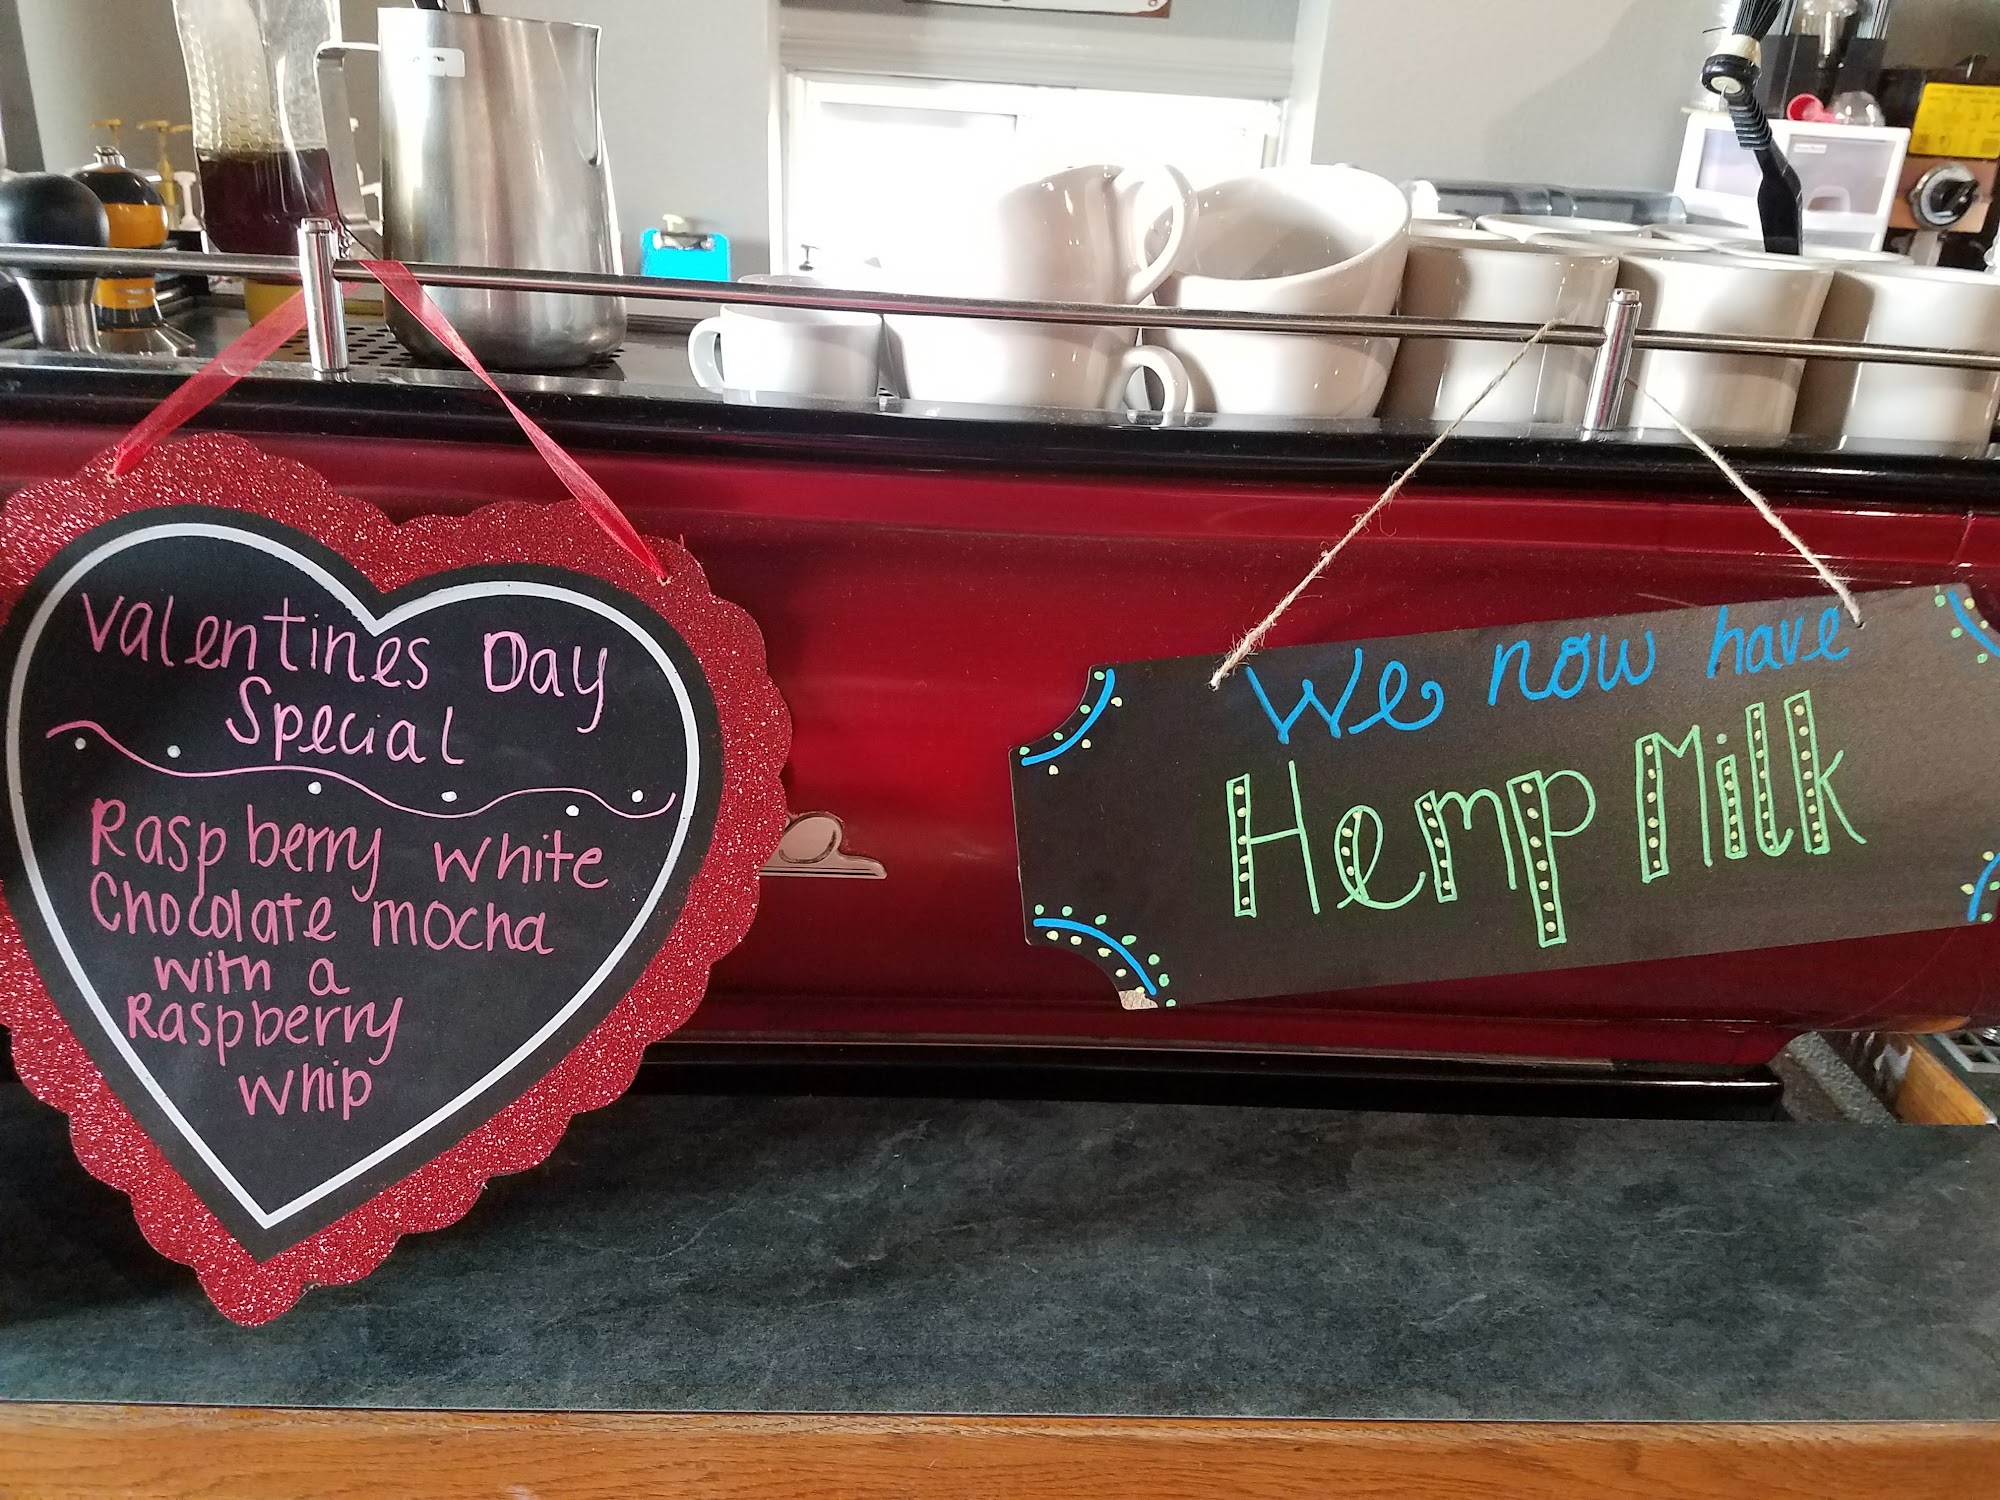 Valentines Day
Special
Raspberry white
Chocolate mocha
with a
Raspberry
whip
We now have
Hemp Milk